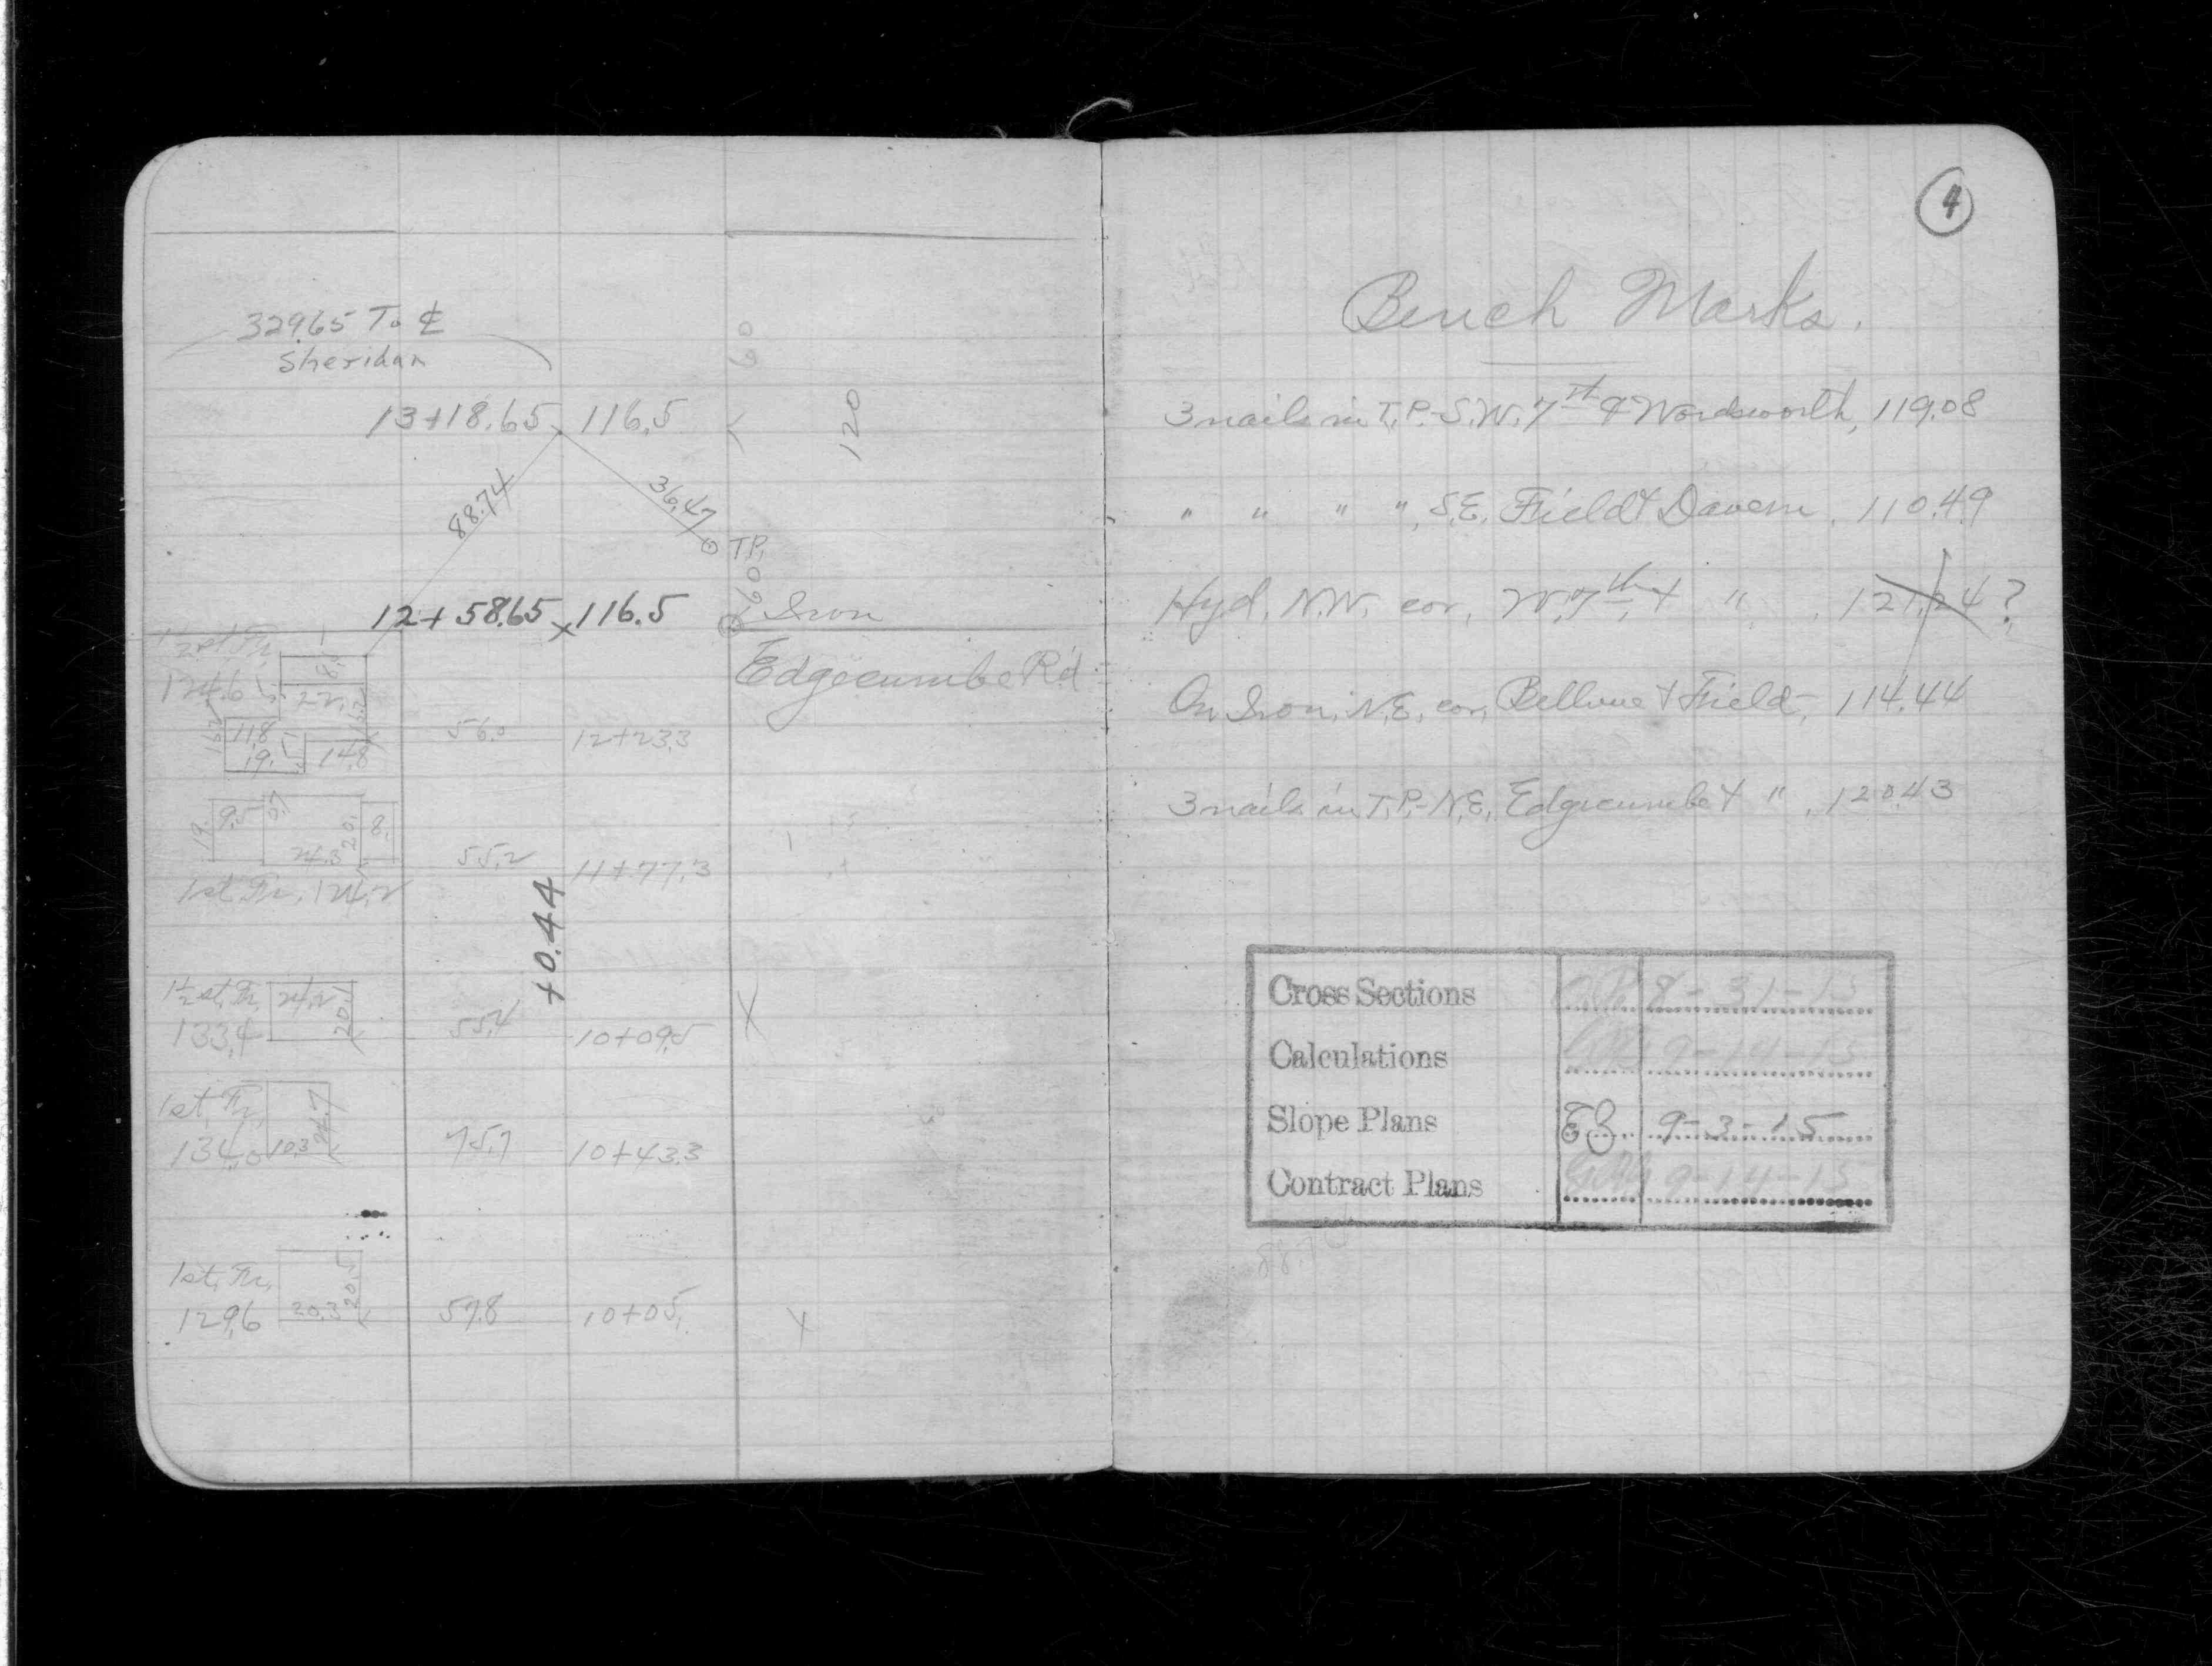 329.65 To ℄
Sheridan
13+18.65 116.5
60
120
88.74
36.47
T.P.
60
12+58.65 x 116.5
Iron
Edgecumbe Rd
1½ st. Fr.
124.6
8.
22.
11.8
19.
14.8
56.0
12+23.3
19.
9.5
24.3
20.
8.
55.2
11+77.3
1st. Fr. 124.2
+0.44
1½ st. Fr.
24.2
20.1
133.4
55.4
10+09.5
1st. Fr.
24.7
134.0
10.3
75.7
10+43.3
1st. Fr.
20.5
129.6
20.3
57.8
10+05.
4
Bench Marks.
3 nails in T.P.-S.W. 7th & Wordsworth, 119.08
" " " ", S.E. Field & Davern, 110.49
Hyd. N.W. cor. W. 7th & " , 121.24 ?
On Iron, N.E. cor. Bellvue & Field, 114.44
3 nails in T.P.-N.E. Edgecumbe & " , 120.43
Cross Sections 8-31-15
Calculations 9-14-15
Slope Plans 9-3-15
Contract Plans 9-14-15